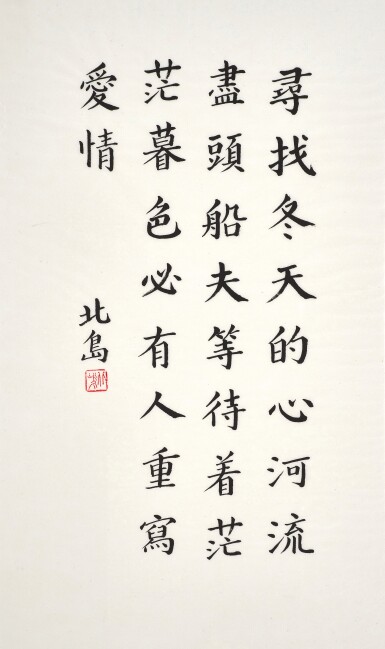 尋找冬天的心河流
盡頭船夫等待着茫
茫暮色必有人重寫
愛情
北島